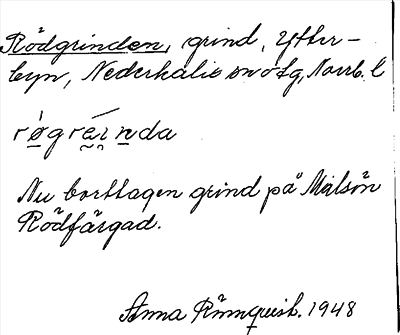 Rödgrinden, grind, Ytter-
byn, Nederkalix sn o tg, Norrb. l
rø̀gréi̯nda
Nu borttagen grind på Målsön
Rödfärgad.
Anna Rönnqvist. 1948